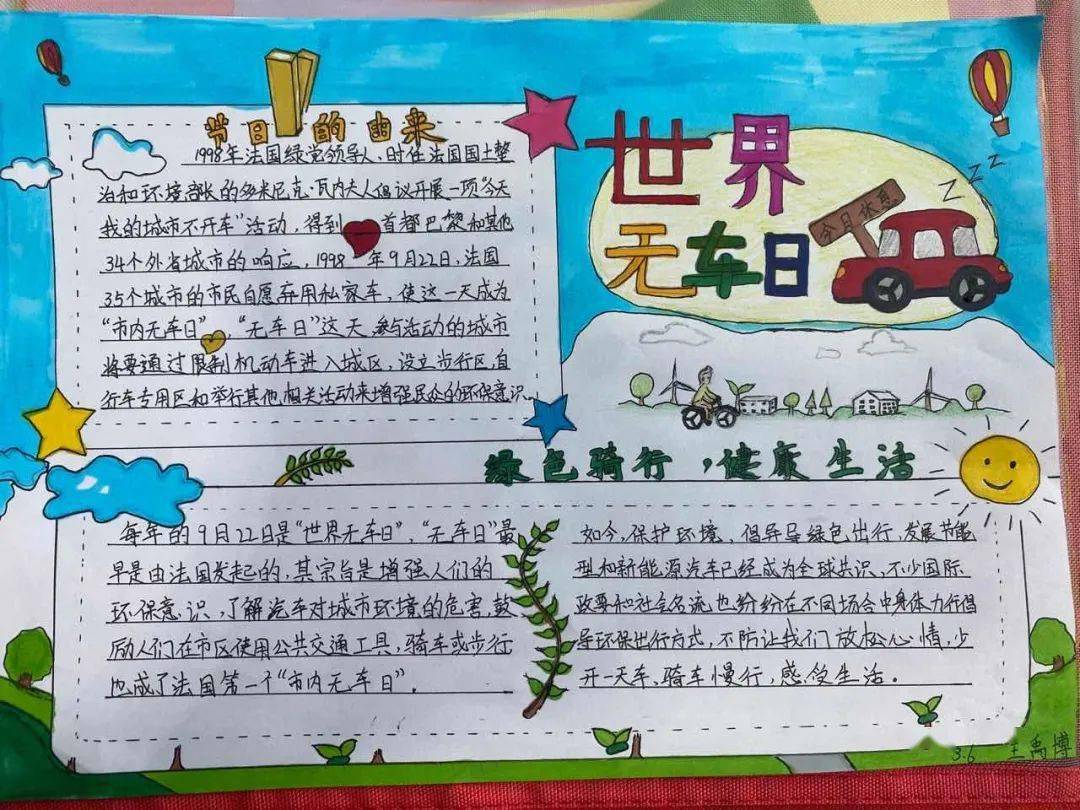 世界
无车日
今日休息
zzz
节日的由来
1998年法国绿党领导人、时任法国国土整
治和环境部长的多米尼克·瓦内夫人倡议开展一项"今天
我的城市不开车"活动,得到首都巴黎和其他
34个外省城市的响应,1998年9月22日,法国
35个城市的市民自愿弃用私家车,使这一天成为
"市内无车日","无车日"这天,参与活动的城市
将要通过限制机动车进入城区,设立步行区,自
行车专用区和举行其他相关活动来增强民众的环保意识.
绿色骑行,健康生活
每年的9月22日是"世界无车日","无车日"最
早是由法国发起的,其宗旨是增强人们的
环保意识,了解汽车对城市环境的危害,鼓
励人们在市区使用公共交通工具,骑车或步行
也成了法国第一个"市内无车日"。
如今,保护环境、倡导绿色出行,发展节能
型和新能源汽车已经成为全球共识,不少国际
政要和社会名流也纷纷在不同场合中身体力行倡
导环保出行方式,不防让我们放松心情,少
开一天车、骑车慢行,感受生活。
3.6 王禹博